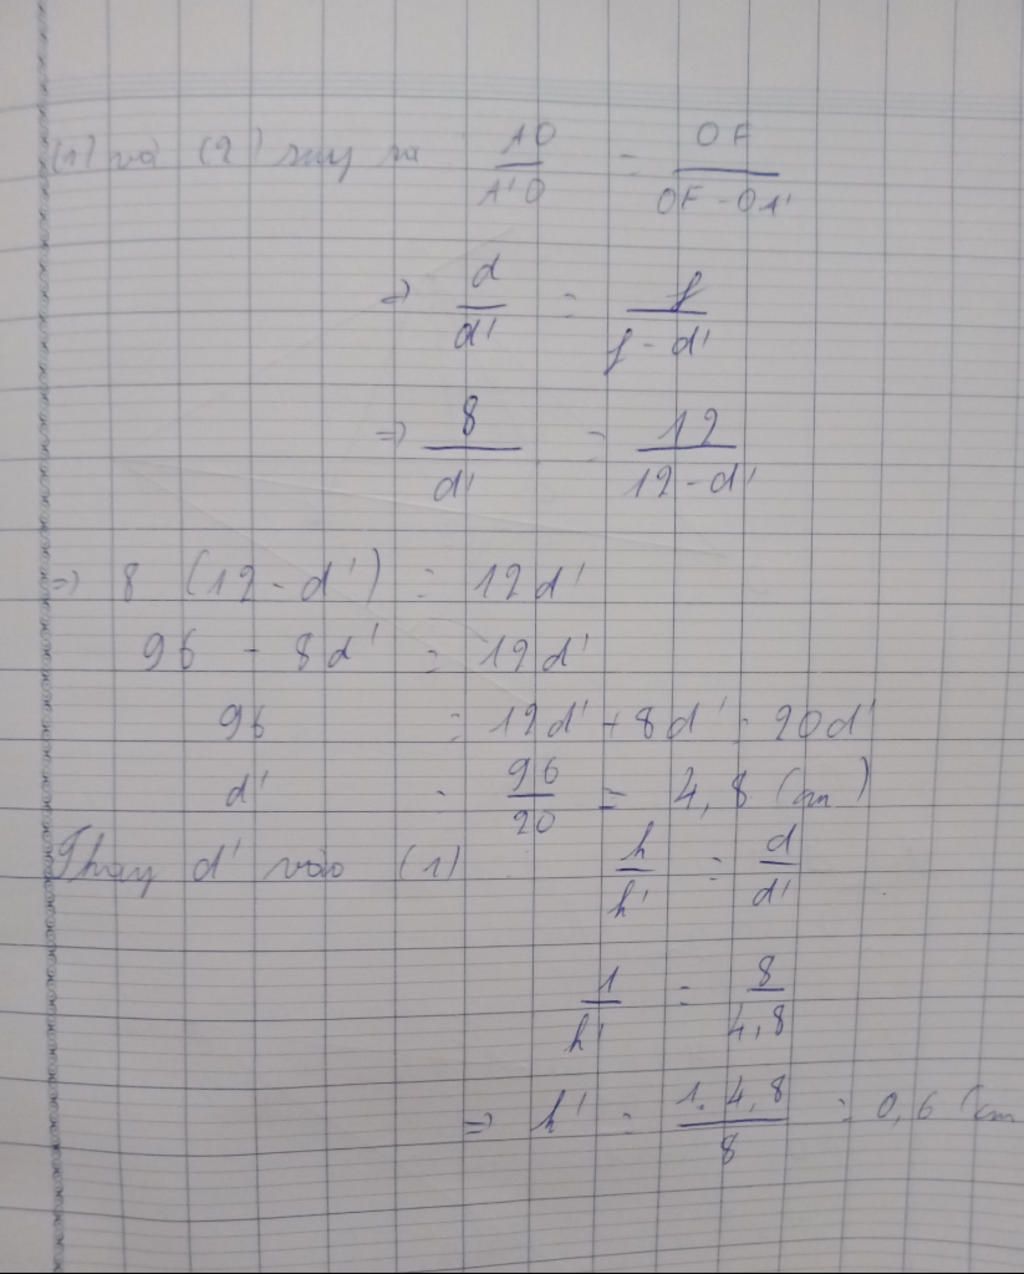 (1) và (2) suy ra AO/A'O = OF/OF-OA'
=> d/d' = f/f-d'
=> 8/d' = 12/12-d'
=> 8 (12-d') = 12d'
96 - 8d' = 12d'
96 = 12d' + 8d' = 20d'
d' = 96/20 = 4,8 (cm)
Thay d' vào (1) h/h' = d/d'
1/h' = 8/4,8
=> h' = 1.4,8/8 = 0,6 (cm